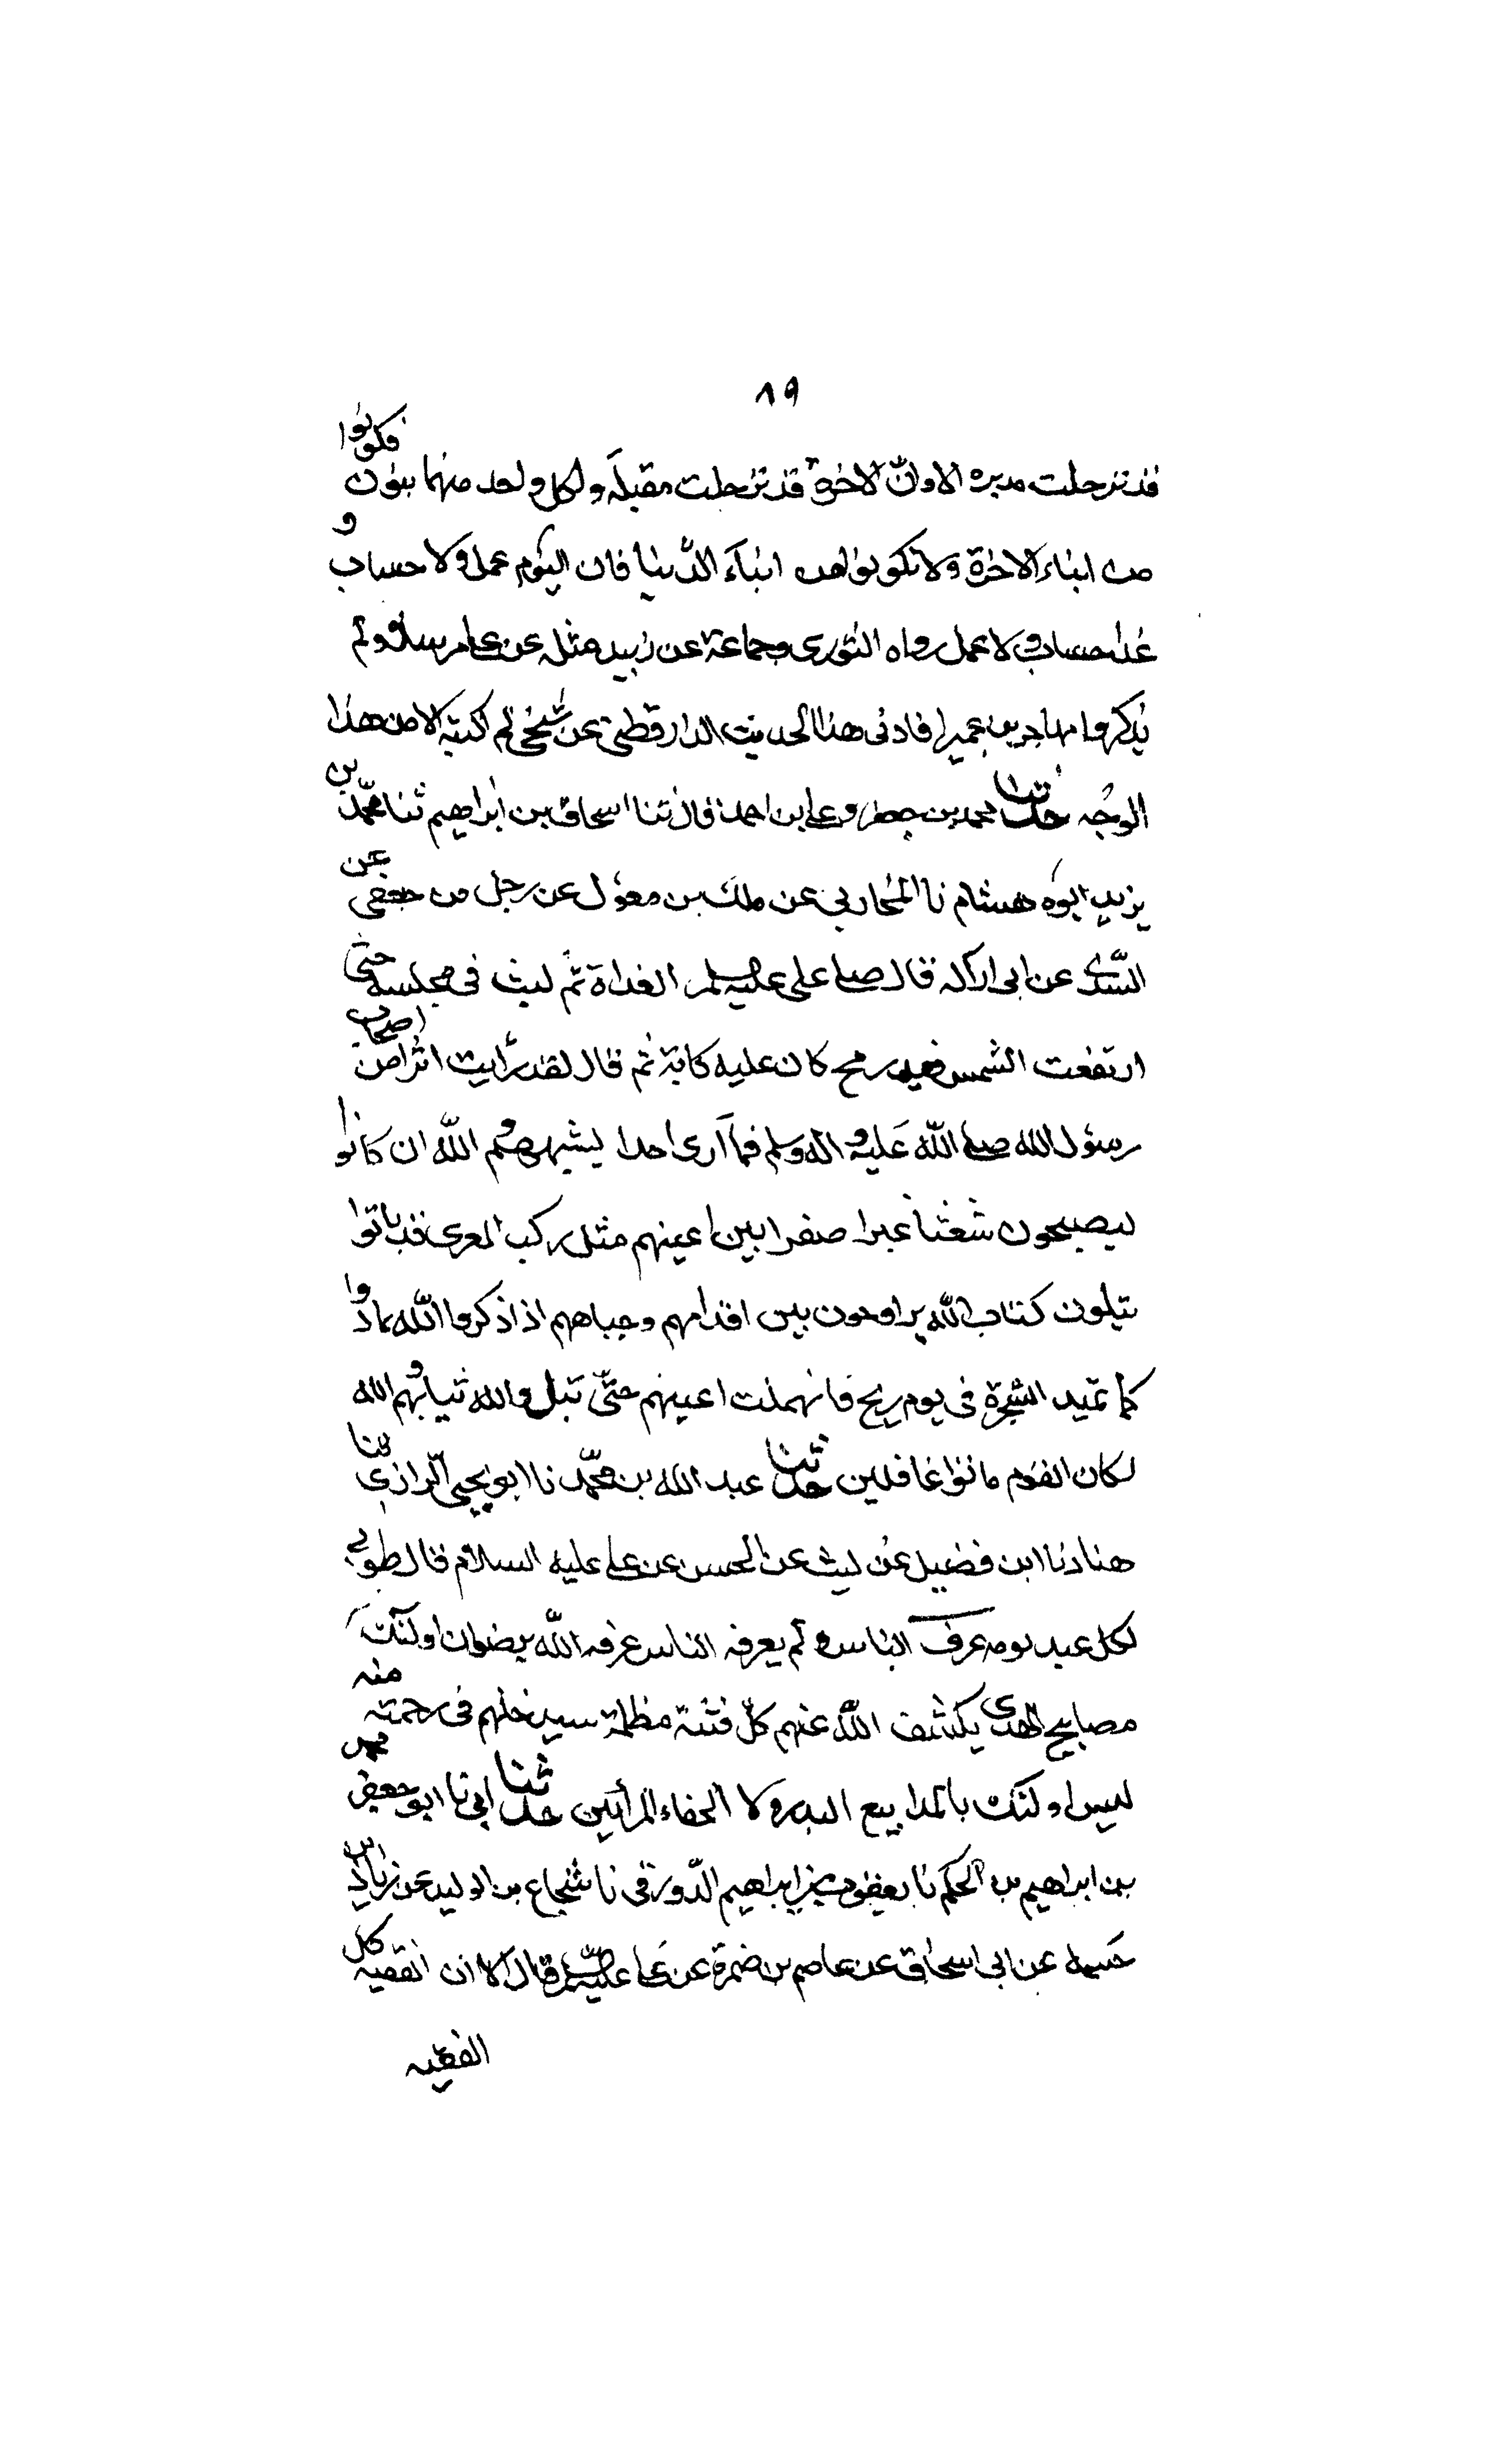 ٨٩
قد ترحلت مدبره الا وان الاخرة قد ترحلت مقبلة ولكل واحد منهما بنون فكونوا
من ابناء الاخرة ولا تكونوا من ابناء الدنيا فان اليوم عمل ولا حساب و
غدا حساب ولا عمل رواه الثوري وجماعة عن زبيد مثله عن علي مرسلا ولم
يذكروا مهاجر بن عمير افادنى هذا الحديث الدارقطني عن شيخي لم اكتبه الا من هذا
الوجه حدثنا محمد بن جعفر وعلي بن احمد قال ثنا اسحاق بن ابراهيم ثنا محمد بن
يزيد ابوه هشام نا المحاربي عن ملك بن مغول عن رجل من جعفي عن
السدي عن ابى اراكه قال صلى علي عليه السلم الغداة ثم لبث في مجلسه حتى
ارتفعت الشمس قيد رمح كان عليه كابة ثم قال لقد رأيت اثرا من اصحاب
رسول الله صلى الله عليه واله وسلم فما آرى احدا يشبههم والله ان كانوا
ليصبحون شعثا غبرا صفرا بين اعينهم مثل ركب المعزى قد باتوا
يتلون كتاب الله يراوحون بين اقدامهم وجباههم اذا ذكروا الله مادوا
كما تميد الشجرة فى يوم ريح فانهملت اعينهم حتى تبل والله ثيابهم والله
لكان القوم ماتوا غافلين حدثنا عبد الله بن محمد نا ابو يحيى الرازي ثنا
هناد نا ابن فضيل عن ليث عن الحسن عن علي عليه السلام قال طوبى
لكل عبد نومه عرف الناس ولم يعرفه الناس عرفه الله برضوان اولئك
مصابيح الهدى يكشف الله عنهم كل فتنة مظلمة سيدخلهم فى رحمته منه
ليس اولئك بالمذاييع البذر ولا الجفاء المرائين حدثنا ابي نا ابو جعفر محمد
بن ابراهيم بن الحكم نا يعقوب بن ابراهيم الدورقى نا شجاع بن الوليد عن زياد بن
خيثمه عن ابى اسحاق عن عاصم بن ضمرة عن علي عليه السلم قال الا ان الفقيه كل
الفقيه